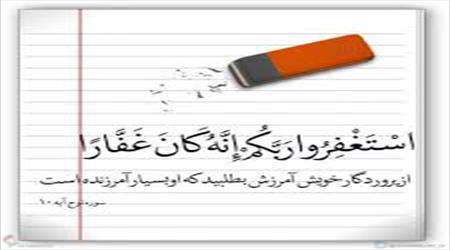 اسْتَغْفِرُوا رَبَّكُمْ إِنَّهُ كَانَ غَفَّارًا
از پروردگار خویش آمرزش بطلبید که او بسیار آمرزنده است
سوره نوح آیه ۱۰